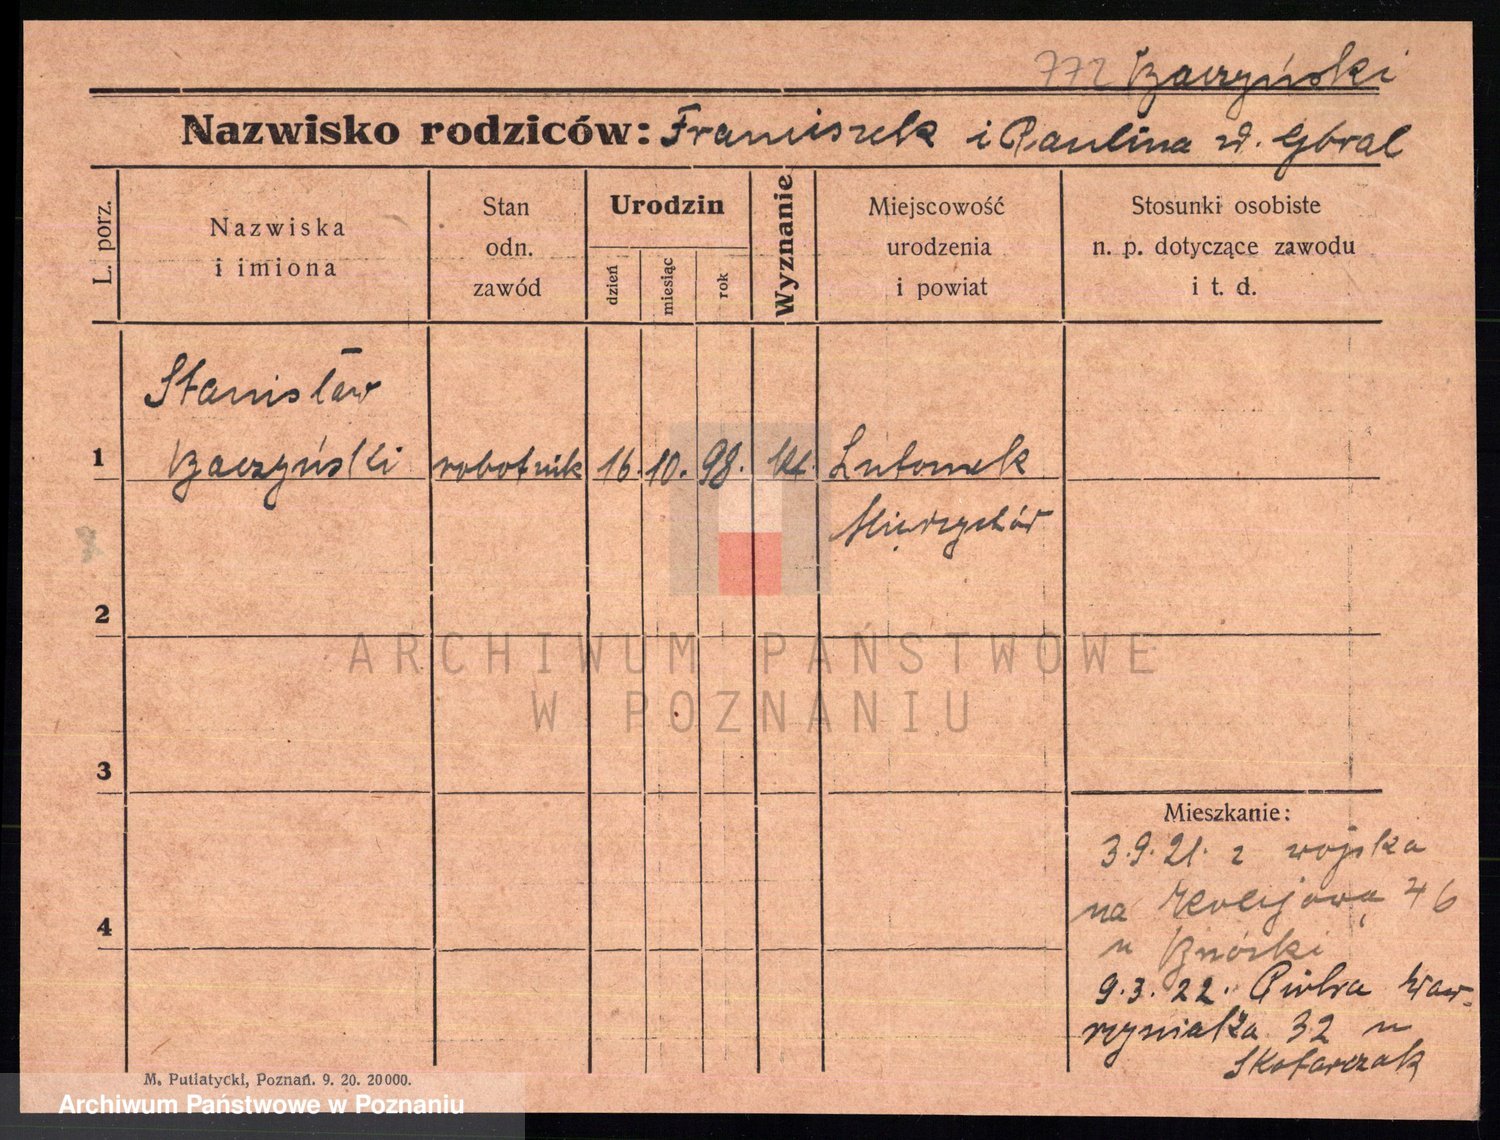 772 Baczyński
Nazwisko rodziców: Franciszek i Paulina zd. Góral
L. porz.
Nazwiska
i imiona
Stan
odn.
zawód
Urodzin
dzień
miesiąc
rok
Wyznanie
Miejscowość
urodzenia
i powiat
Stosunki osobiste
n. p. dotyczące zawodu
i t. d.
Stanisław
1 Baczyński robotnik 16. 10. 98. kat. Lutomek
Międzychód
2
ARCHIWUM PAŃSTWOWE
W POZNANIU
3
Mieszkanie:
3.9.21. z wojska
4 na 46
u
9.3.22. Piotra Waw-
rzyniaka 32 u
Skotarczak
M. Putiatycki, Poznań. 9. 20. 20000.
Archiwum Państwowe w Poznaniu